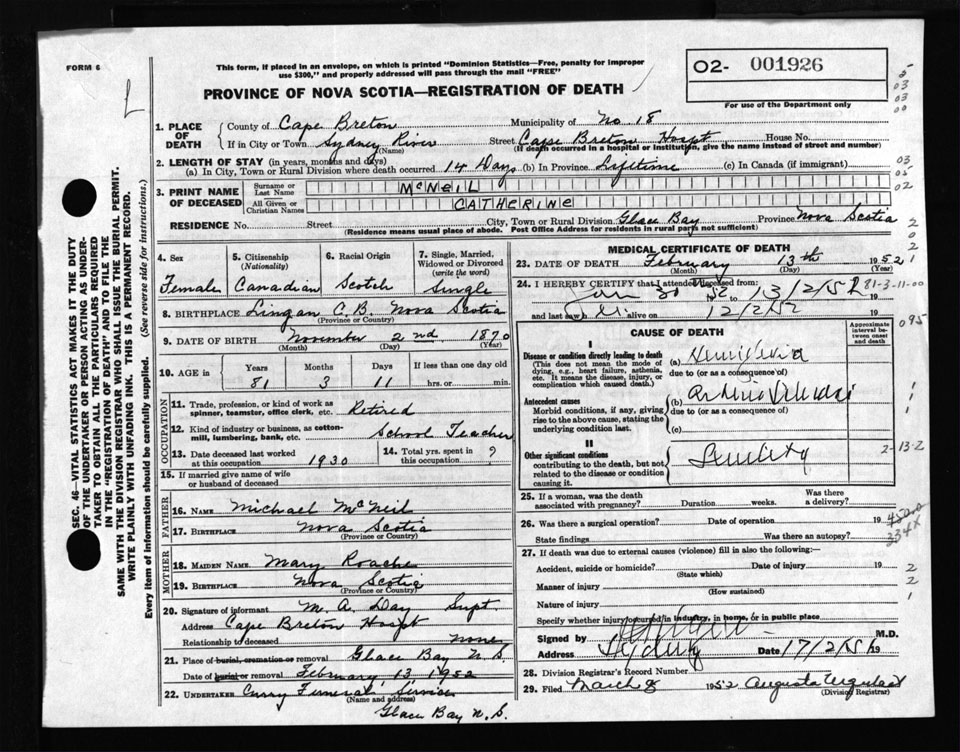 FORM 6
This form, if placed in an envelope, on which is printed "Dominion Statistics—Free, penalty for improper
use $300," and properly addressed will pass through the mail "FREE"
PROVINCE OF NOVA SCOTIA—REGISTRATION OF DEATH
02- 001926
For use of the Department only
1. PLACE OF DEATH
County of Cape Breton Municipality of No 18
If in City or Town Sydney River Street Cape Breton Hospt House No.
(Name) (If death occurred in a hospital or institution, give the name instead of street and number)
2. LENGTH OF STAY (in years, months and days)
(a) In City, Town or Rural Division where death occurred 14 Days (b) In Province Lifetime (c) In Canada (if immigrant)
3. PRINT NAME OF DECEASED
Surname or Last Name McNEIL
All Given or Christian Names CATHERINE
RESIDENCE No. Street City, Town or Rural Division Glace Bay Province Nova Scotia
(Residence means usual place of abode. Post Office Address for residents in rural parts not sufficient)
4. Sex Female
5. Citizenship (Nationality) Canadian
6. Racial Origin Scotch
7. Single, Married, Widowed or Divorced (write the word) Single
8. BIRTHPLACE Lingan C.B. Nova Scotia
(Province or Country)
9. DATE OF BIRTH November 2nd 1870
(Month) (Day) (Year)
10. AGE in Years 81 Months 3 Days 11 If less than one day old hrs. or min.
OCCUPATION
11. Trade, profession, or kind of work as spinner, teamster, office clerk, etc. Retired
12. Kind of industry or business, as cotton-mill, lumbering, bank, etc. School Teacher
13. Date deceased last worked at this occupation 1930
14. Total yrs. spent in this occupation ?
15. If married give name of wife or husband of deceased
FATHER
16. NAME Michael McNeil
17. BIRTHPLACE Nova Scotia
(Province or Country)
MOTHER
18. MAIDEN NAME Mary Roache
19. BIRTHPLACE Nova Scotia
(Province or Country)
20. Signature of informant M. A. Day Supt.
Address Cape Breton Hospt
Relationship to deceased none
21. Place of burial, cremation or removal Glace Bay N.S.
Date of burial or removal February 13, 1952
22. UNDERTAKER Curry Funeral Service
(Name and address)
Glace Bay N.S.
MEDICAL CERTIFICATE OF DEATH
23. DATE OF DEATH February 13th 1952
(Month) (Day) (Year)
24. I HEREBY CERTIFY that I attended deceased from:
Jan 30 52 to 13/2/52 19
81-3-11-00
and last saw alive on 12/2/52 19
CAUSE OF DEATH
Approximate interval between onset and death
095
I
Disease or condition directly leading to death
(This does not mean the mode of dying, e.g., heart failure, asthenia, etc. It means the disease, injury, or complication which caused death.)
(a)
due to (or as a consequence of)
Antecedent causes
Morbid conditions, if any, giving rise to the above cause, stating the underlying condition last.
(b)
due to (or as a consequence of)
(c)
II
Other significant conditions
contributing to the death, but not related to the disease or condition causing it.
Senility
2-13-2
25. If a woman, was the death associated with pregnancy? Duration weeks. Was there a delivery?
26. Was there a surgical operation? Date of operation 19
State findings Was there an autopsy?
450.0
334X
27. If death was due to external causes (violence) fill in also the following:—
Accident, suicide or homicide? Date of injury 19
(State which)
Manner of injury
(How sustained)
Nature of injury
Specify whether injury occurred in industry, in home, or in public place
Signed by M.D.
Address Sydney Date 17/2/52 19
28. Division Registrar's Record Number
29. Filed March 8 1952 Augusta Urquhart
(Division Registrar)
SEC. 46—VITAL STATISTICS ACT MAKES IT THE DUTY
OF THE UNDERTAKER OR PERSON ACTING AS UNDER-
TAKER TO OBTAIN ALL THE PARTICULARS REQUIRED
IN THE "REGISTRATION OF DEATH" AND TO FILE THE
SAME WITH THE DIVISION REGISTRAR WHO SHALL ISSUE THE BURIAL PERMIT.
WRITE PLAINLY WITH UNFADING INK. THIS IS A PERMANENT RECORD.
Every item of information should be carefully supplied. (See reverse side for instructions.)